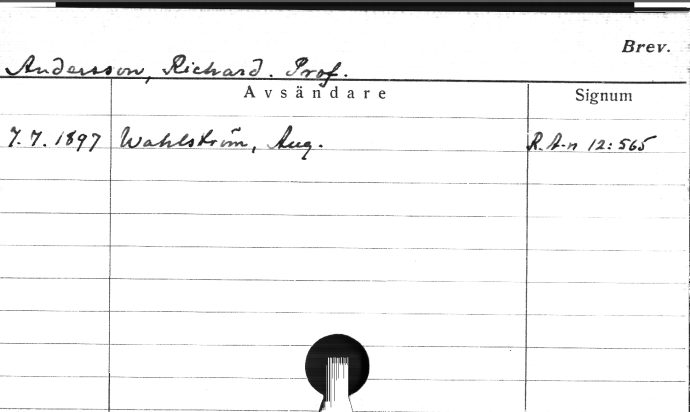 Brev.
Andersson, Richard. Prof.
Avsändare Signum
7.7.1897 Wahlström, Aug. R.A-n 12:565